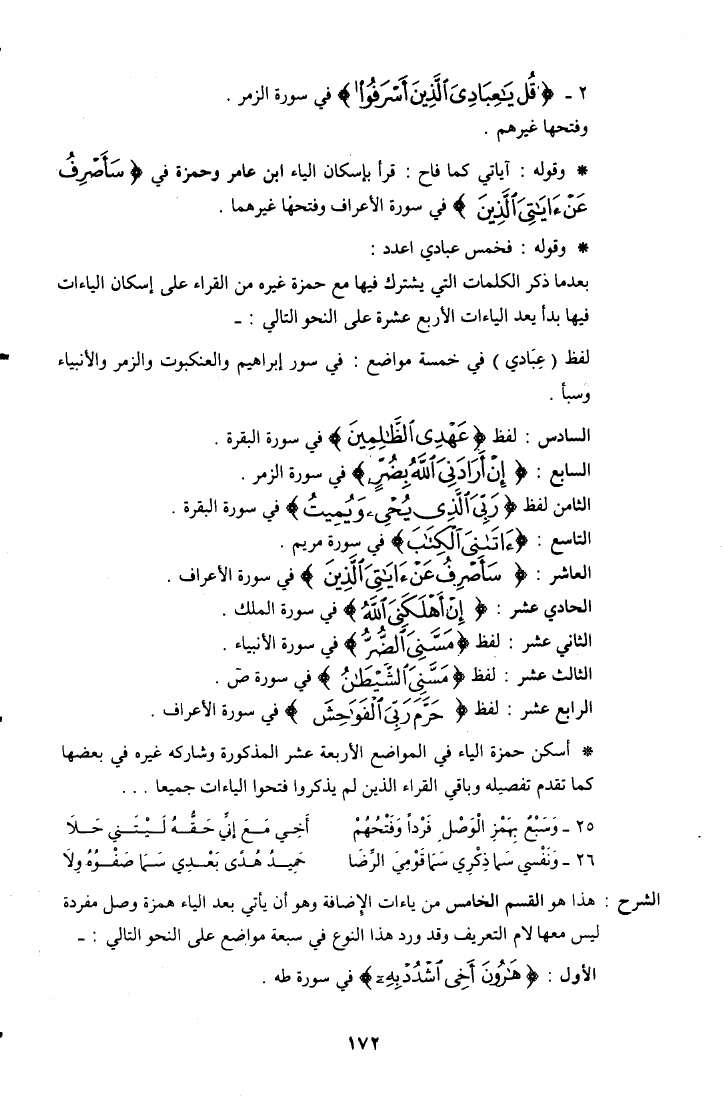 ٢ ـ ﴿ قُل يَٰعِبَادِىَ ٱلَّذِينَ أَسۡرَفُوا۟ ﴾ في سورة الزمر .
وفتحها غيرهم .
* وقوله : آياتي كما فاح : قرأ بإسكان الياء ابن عامر وحمزة في ﴿ سَأَصۡرِفُ
عَنۡ ءَايَٰتِىَ ٱلَّذِينَ ﴾ في سورة الأعراف وفتحها غيرهما .
* وقوله : فخمس عبادي اعدد :
بعدما ذكر الكلمات التي يشترك فيها مع حمزة غيره من القراء على إسكان الياءات
فيها بدأ يعد الياءات الأربع عشرة على النحو التالي : ـ
لفظ ( عِبَادي ) في خمسة مواضع : في سور إبراهيم والعنكبوت والزمر والأنبياء
وسبأ .
السادس : لفظ ﴿ عَهۡدِى ٱلظَّٰلِمِينَ ﴾ في سورة البقرة .
السابع : ﴿ إِنۡ أَرَادَنِىَ ٱللَّهُ بِضُرٍّ ﴾ في سورة الزمر .
الثامن لفظ ﴿ رَبِّىَ ٱلَّذِى يُحۡىِۦ وَيُمِيتُ ﴾ في سورة البقرة .
التاسع : ﴿ ءَاتَٰنِىَ ٱلۡكِتَٰبَ ﴾ في سورة مريم .
العاشر : ﴿ سَأَصۡرِفُ عَنۡ ءَايَٰتِىَ ٱلَّذِينَ ﴾ في سورة الأعراف .
الحادي عشر : ﴿ إِنۡ أَهۡلَكَنِىَ ٱللَّهُ ﴾ في سورة الملك .
الثاني عشر : لفظ ﴿ مَسَّنِىَ ٱلضُّرُّ ﴾ في سورة الأنبياء .
الثالث عشر : لفظ ﴿ مَسَّنِىَ ٱلشَّيۡطَٰنُ ﴾ في سورة صۤ .
الرابع عشر : لفظ ﴿ حَرَّمَ رَبِّىَ ٱلۡفَوَٰحِشَ ﴾ في سورة الأعراف .
* أسكن حمزة الياء في المواضع الأربعة عشر المذكورة وشاركه غيره في بعضها
كما تقدم تفصيله وباقي القراء الذين لم يذكروا فتحوا الياءات جميعا . . .
٢٥ ـ وَسَبْعٌ بِهَمْزِ الْوَصْلِ فَرْداً وَفَتْحُهُمْ أَخِي مَعَ إِنِّي حَقُّهُ لَيْتَنِي حَلَا
٢٦ ـ وَنَفْسِي سَمَا ذِكْرِي سَمَا قَوْمِيَ الرِّضَا حَمِيدُ هُدًى بَعْدِي سَمَا صَفْوُهُ وِلَا
الشرح : هذا هو القسم الخامس من ياءات الإضافة وهو أن يأتي بعد الياء همزة وصل مفردة
ليس معها لام التعريف وقد ورد هذا النوع في سبعة مواضع على النحو التالي : ـ
الأول : ﴿ هَٰرُونَ أَخِى ٱشۡدُدۡ بِهِۦٓ ﴾ في سورة طه .
١٧٢